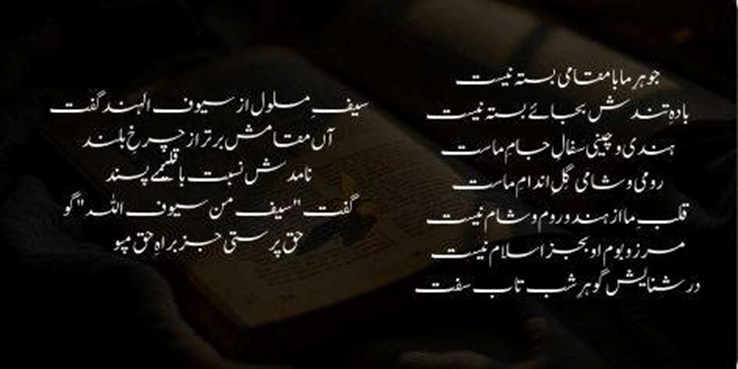 جوہرِ ما با مقامی بستہ نیست
بادہِ تندش بجائے بستہ نیست
ہندی و چینی سفالِ جامِ ماست
رومی و شامی گِلِ اندامِ ماست
قلبِ ما از ہند و روم و شام نیست
مرز و بوم او بجز اسلام نیست
در شنایش گوہرِ شب تاب سفت
سیفِ مسلول از سیوف الہند گفت
آں مقامش برتر از چرخِ بلند
نامدش نسبت باقلیمے پسند
گفت "سیف من سیوف اللہ" گو
حق پرستی جز براہِ حق مپو